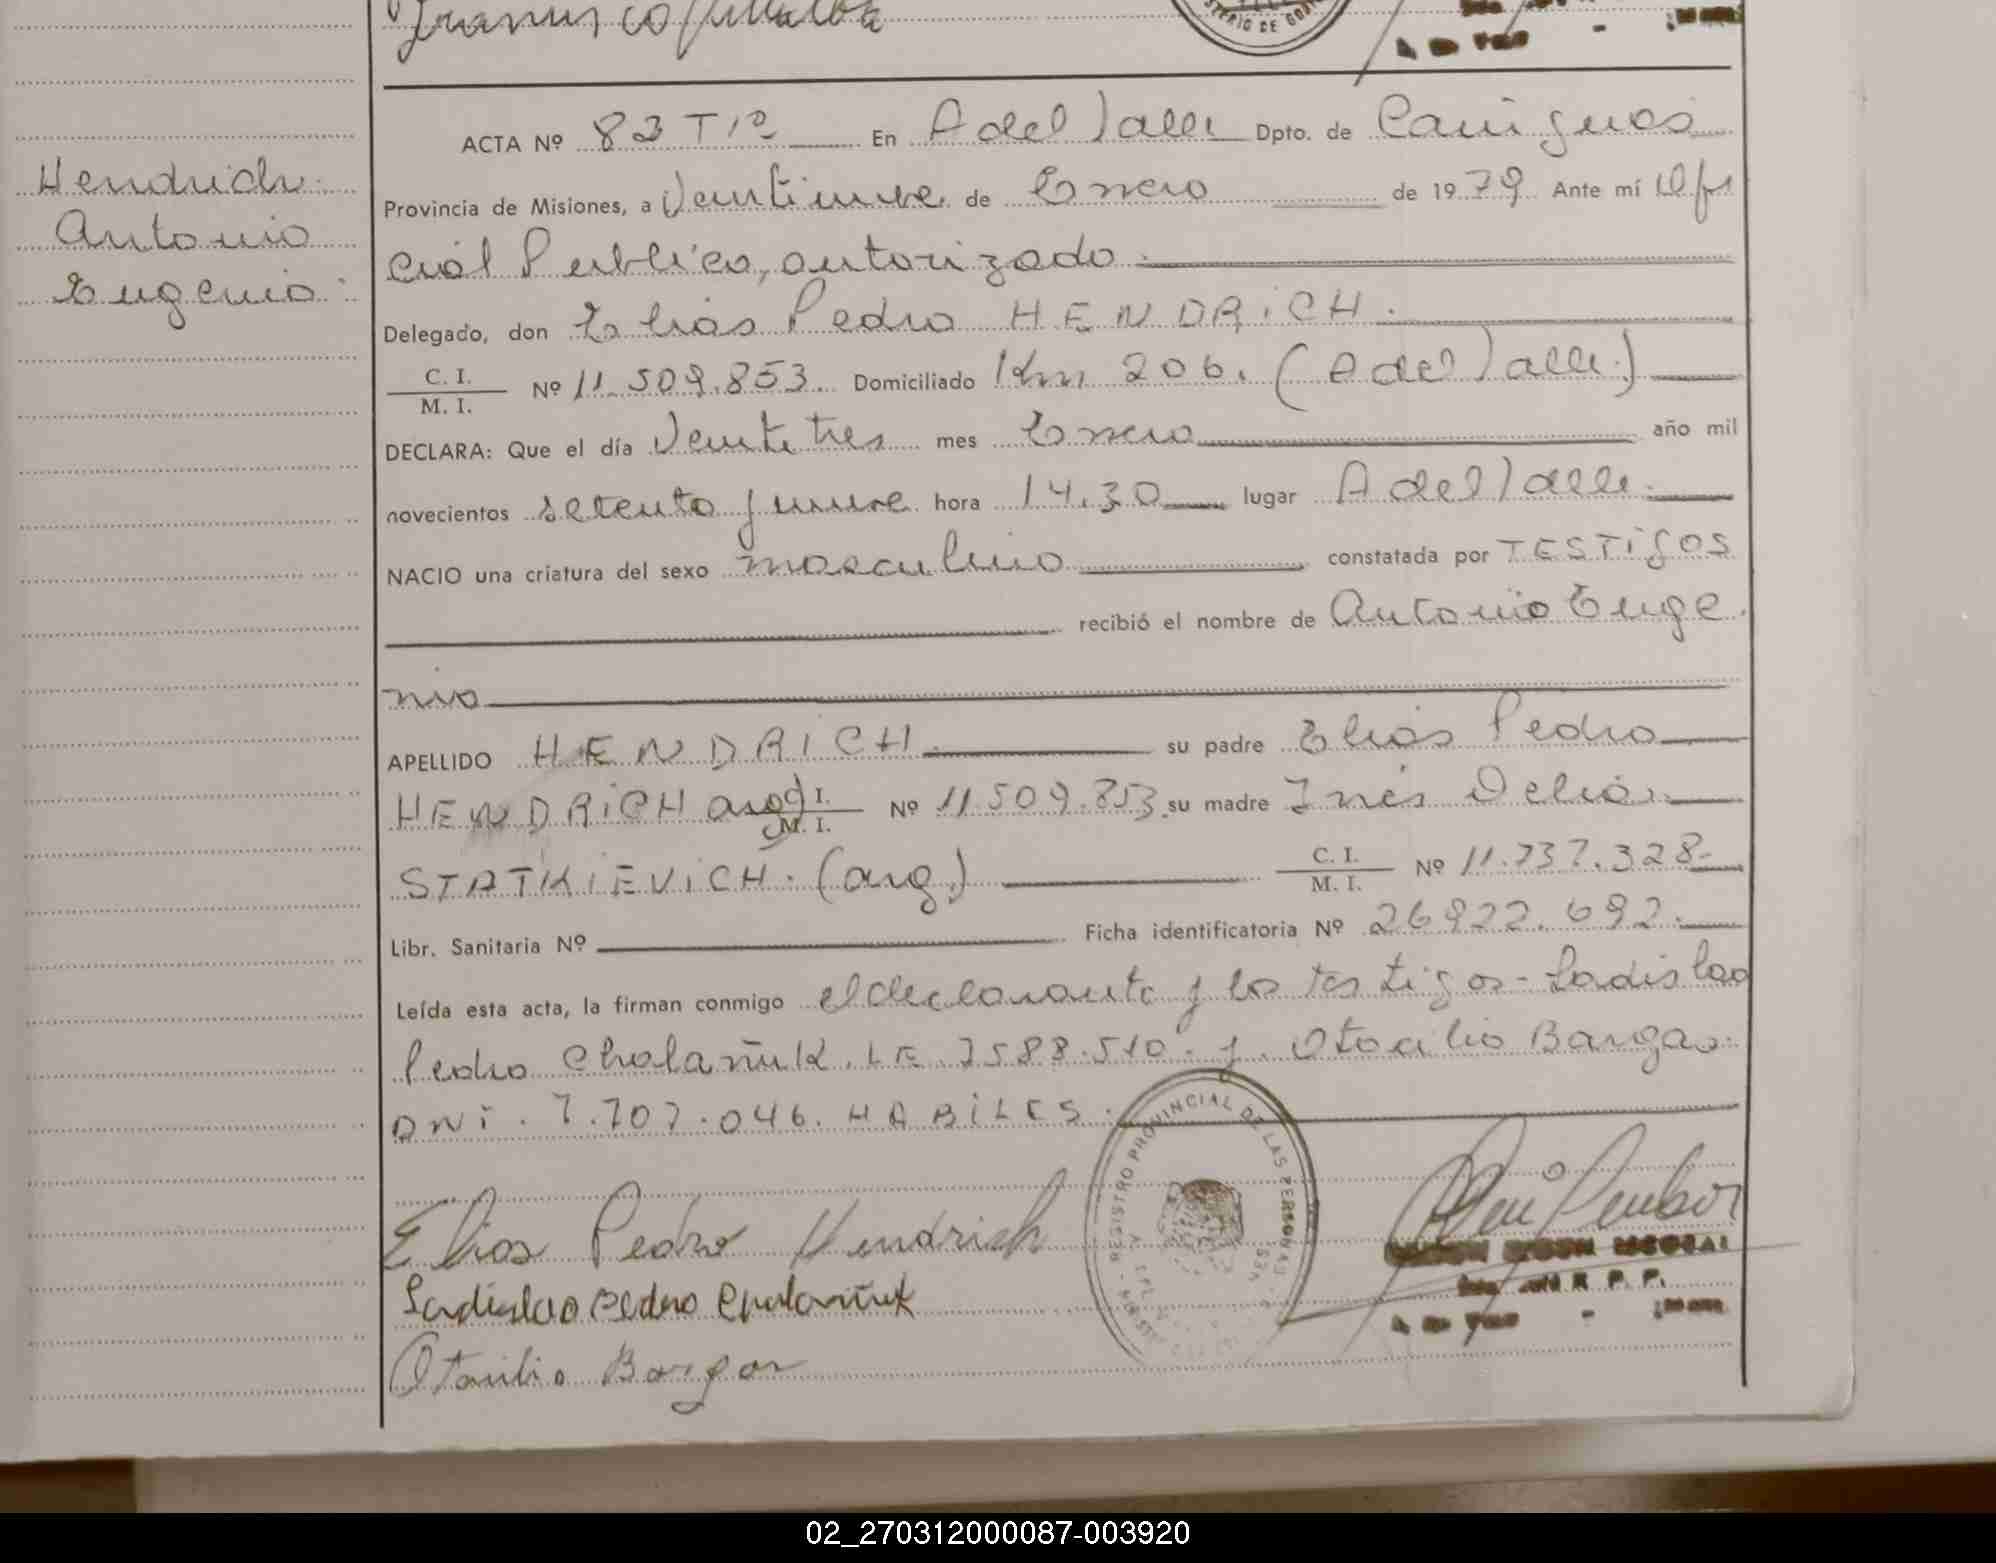 Hendrich
Antonio
Eugenio
ACTA Nº 83 Tº 1º En A del Valle Dpto. de Cainguas
Provincia de Misiones, a Veintinueve de Enero de 1979 Ante mí Ofi
cial Publico, autorizado
Delegado, don Elias Pedro HENDRiCH.
C. I.
M. I. Nº 11.509.853 Domiciliado Km 206. (A del Valle.)
DECLARA: Que el día Veintetres mes Enero año mil
novecientos setenta y nueve hora 14.30 lugar A del Valle.
NACIO una criatura del sexo masculino constatada por TESTiGOS
recibió el nombre de Antonio Euge
nio
APELLIDO HENDRICH su padre Elias Pedro
HENDRiCH arg) C. I.
M. I. Nº 11.509.853 su madre Inés Delia
STATKiEViCH. (arg.) C. I.
M. I. Nº 11.737.328-
Libr. Sanitaria Nº Ficha identificatoria Nº 26922.692.
Leída esta acta, la firman conmigo el declarante y los testigos - Ladislao
Pedro Cholañuk. LE 7588.510. y. Otacilio Bargas.
DNi. 7.707.046. HABiLES.
REGISTRO PROVINCIAL DE LAS PERSONAS
Elias Pedro Hendrich
Ladislao Pedro Cholañuk
R. P. P.
Otacilio Bargas
02_270312000087-003920